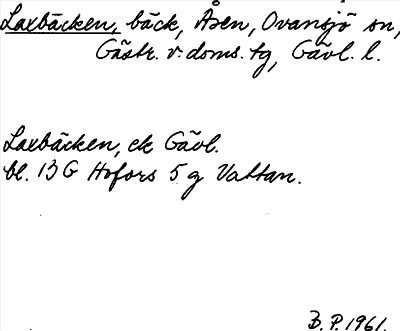 Laxbäcken, bäck, Åsen, Ovansjö sn,
Gästr. v. doms. tg, Gävl. l.
Laxbäcken, ek Gävl.
bl. 13 G Hofors 5 g Vattan.
B. P. 1961.